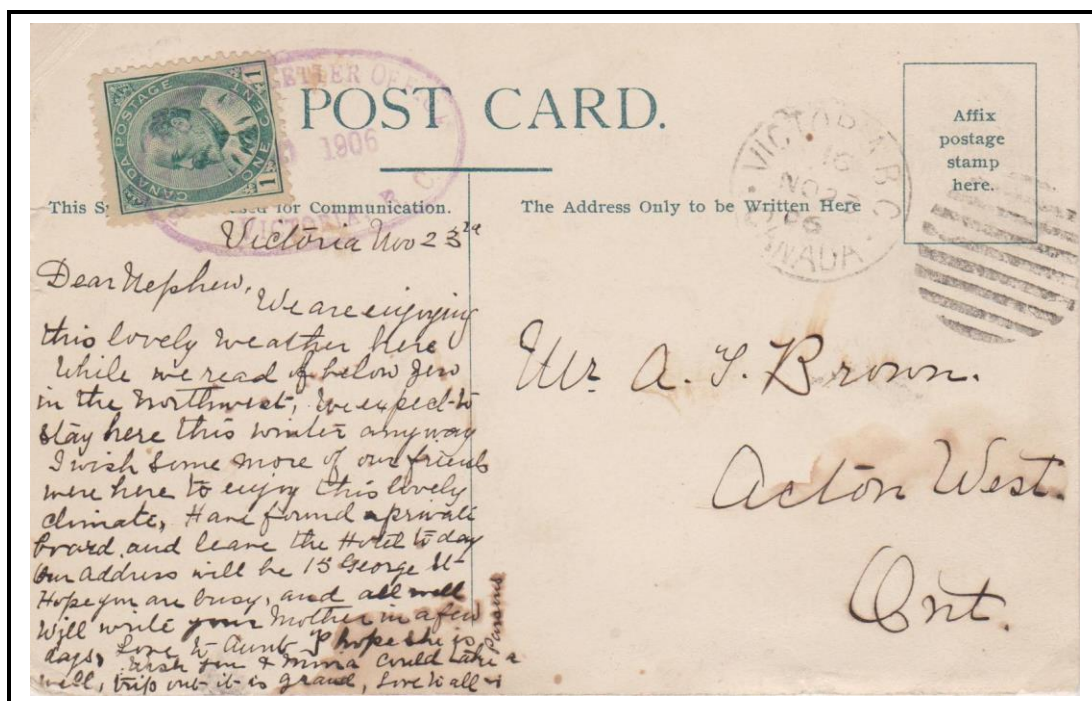 POST CARD.
CANADA POSTAGE
ONE CENT
1 1
LETTER OFFICE
1906
VICTORIA B C
VICTORIA B.C.
16
NO 23
06
CANADA
Affix
postage
stamp
here.
This S used for Communication.
The Address Only to be Written Here
Victoria Nov 23rd
Dear Nephew,
We are enjoying
this lovely weather here
While we read of below zero
in the Northwest, We expect to
stay here this winter anyway
I wish some more of our friends
were here to enjoy this lovely
climate, Have found a private
board, and leave the Hotel to day
Our address will be 15 George St
Hope you are busy, and all well
Will write your Mother in a few
days, Love to Aunt J hope she is
well, Wish you & could take a
trip out it is grand, Love to all
Mr A. T. Brown.
Acton West.
Ont.